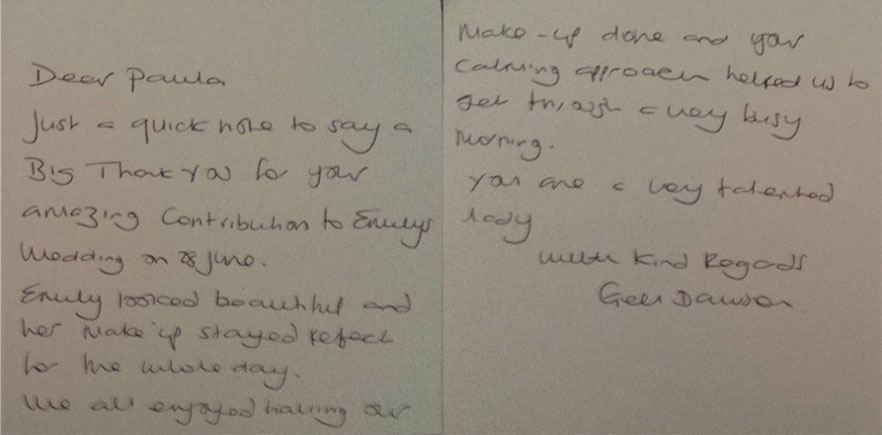 Dear Paula
Just a quick note to say a
Big Thank you for your
amazing Contribution to Emilys
Wedding on 28 June.
Emily looked beautiful and
her Make up stayed Perfect
for the whole day.
We all enjoyed having our
Make-up done and your
calming approach helped us to
get through a very busy
Morning.
You are a very talented
lady
With Kind Regards
Dawson